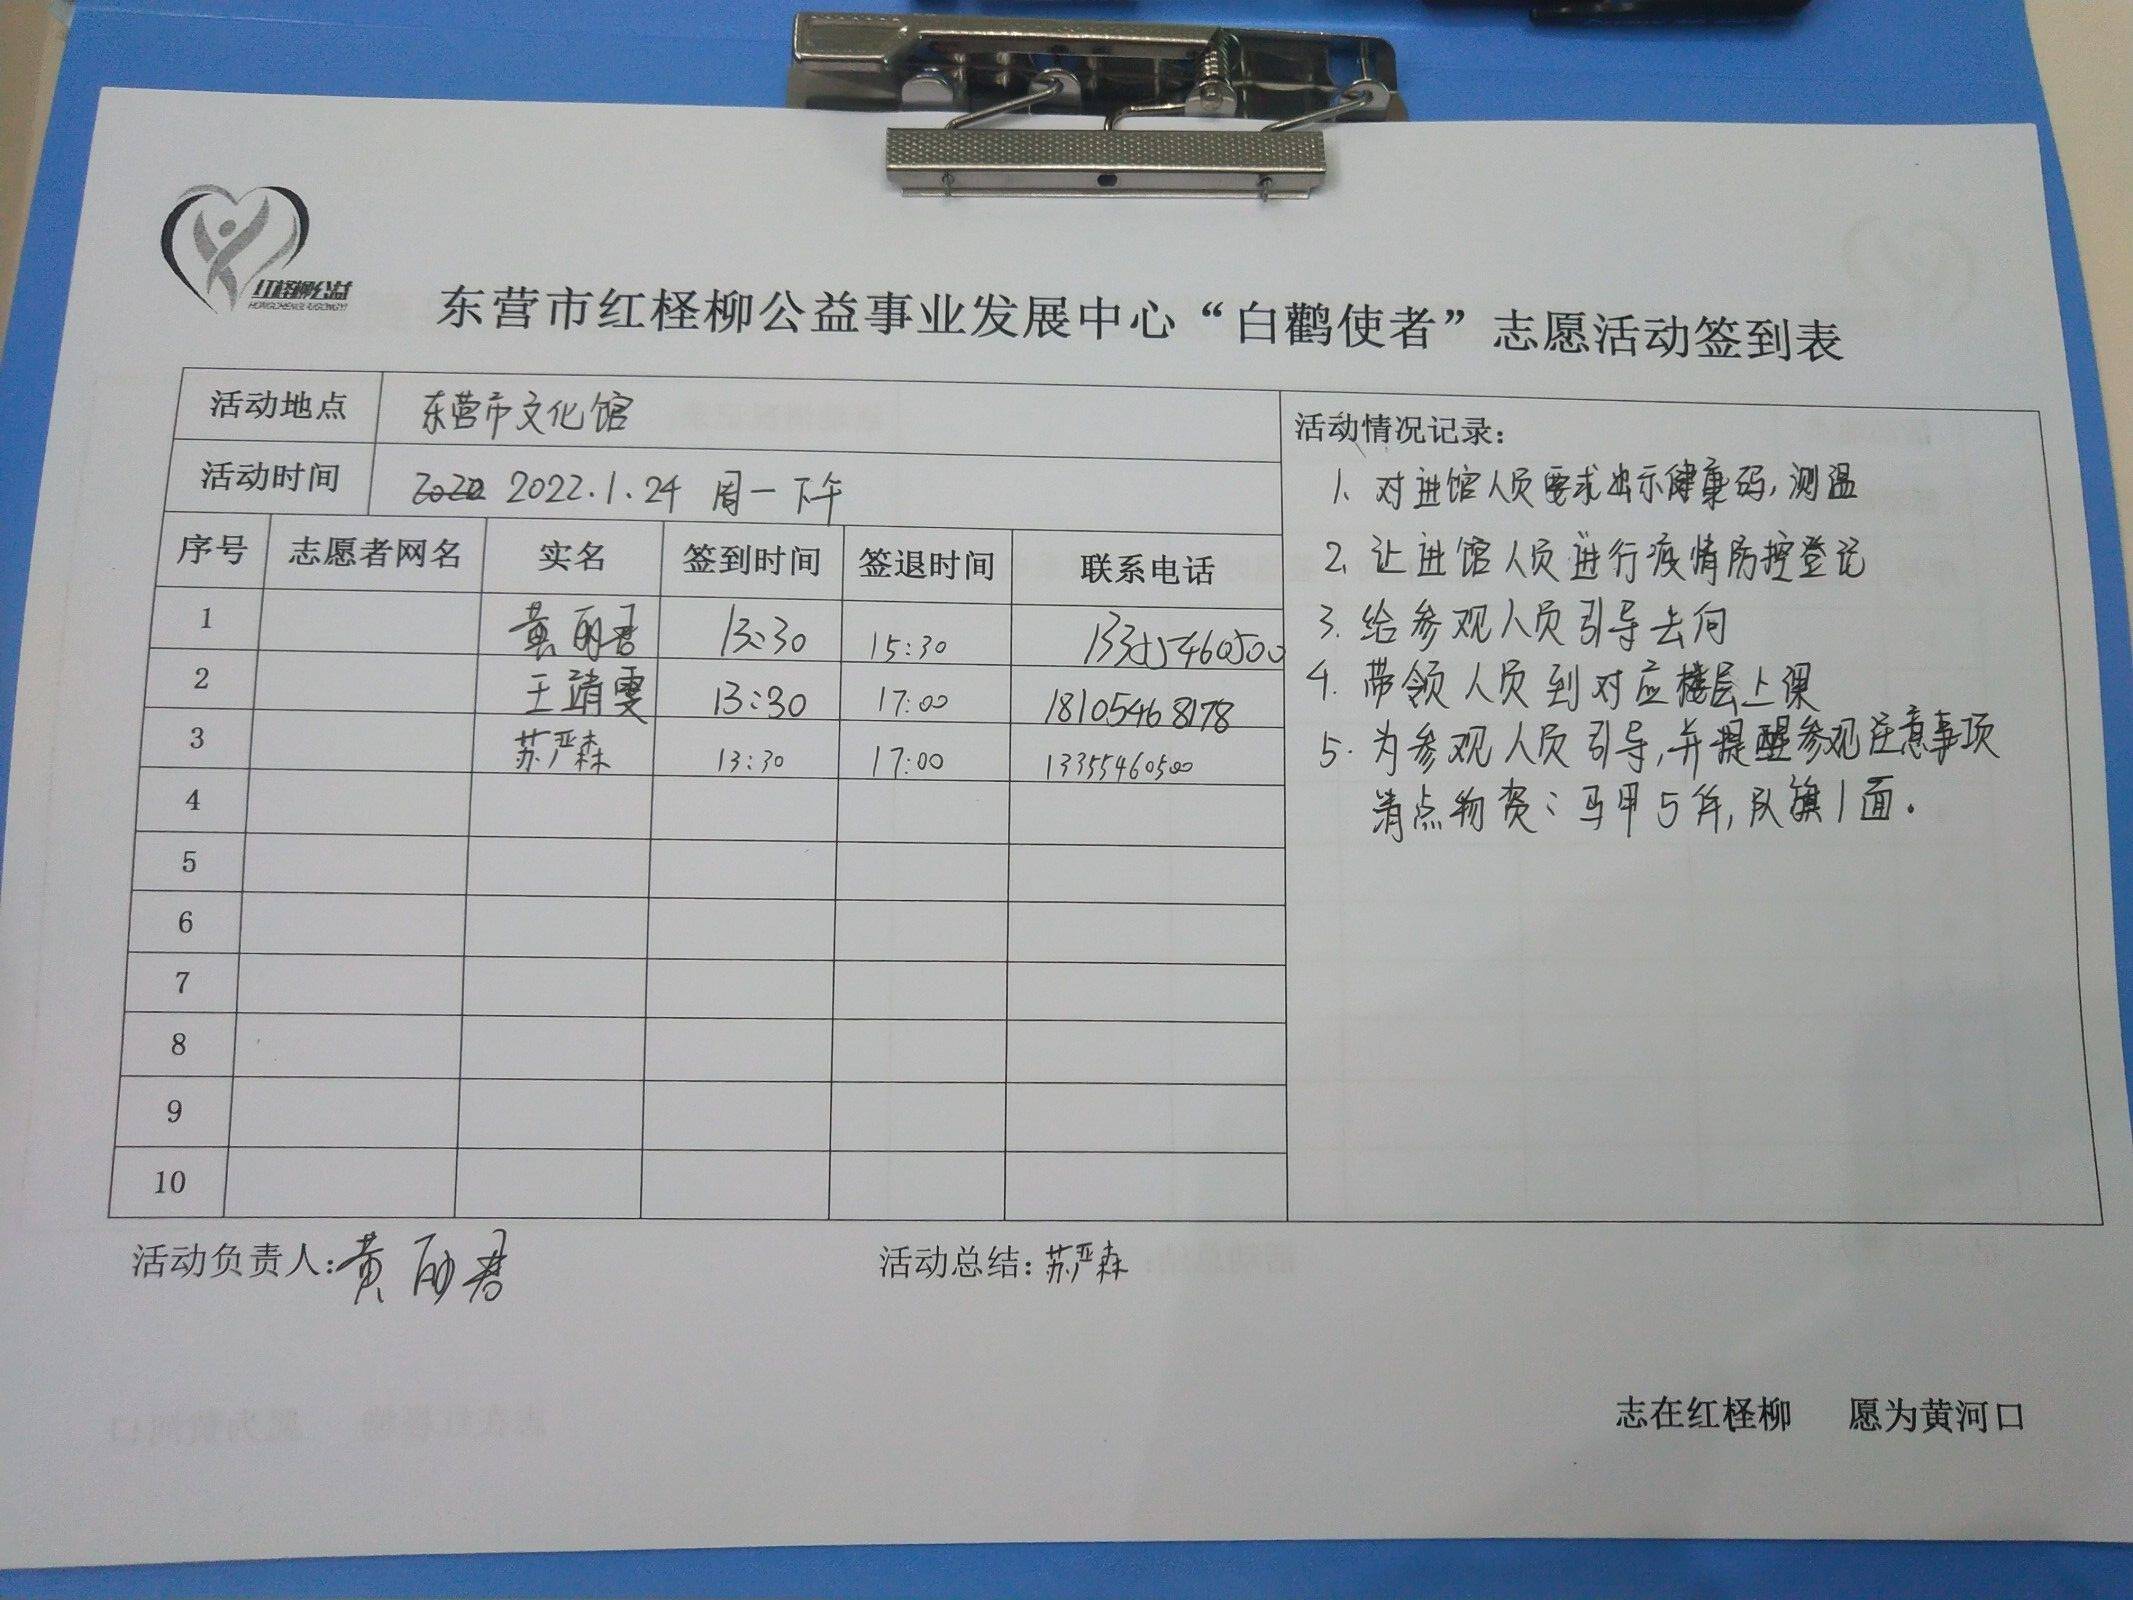 红柽柳公益
HONGCHENGLIUGONGYI
东营市红柽柳公益事业发展中心“白鹳使者”志愿活动签到表
活动地点 东营市文化馆
活动时间 2020 2022.1.24 周一下午
序号 志愿者网名 实名 签到时间 签退时间 联系电话
1 黄丽君 13:30 15:30 13355460500
2 王靖雯 13:30 17:00 18105468178
3 苏严森 13:30 17:00 13355460500
4
5
6
7
8
9
10
活动情况记录：
1、对进馆人员要求出示健康码，测温
2、让进馆人员进行疫情防控登记
3、给参观人员引导去向
4、带领人员到对应楼层上课
5、为参观人员引导，并提醒参观注意事项
清点物资：马甲5件，队旗1面。
活动负责人：黄丽君 活动总结：苏严森
志在红柽柳 愿为黄河口